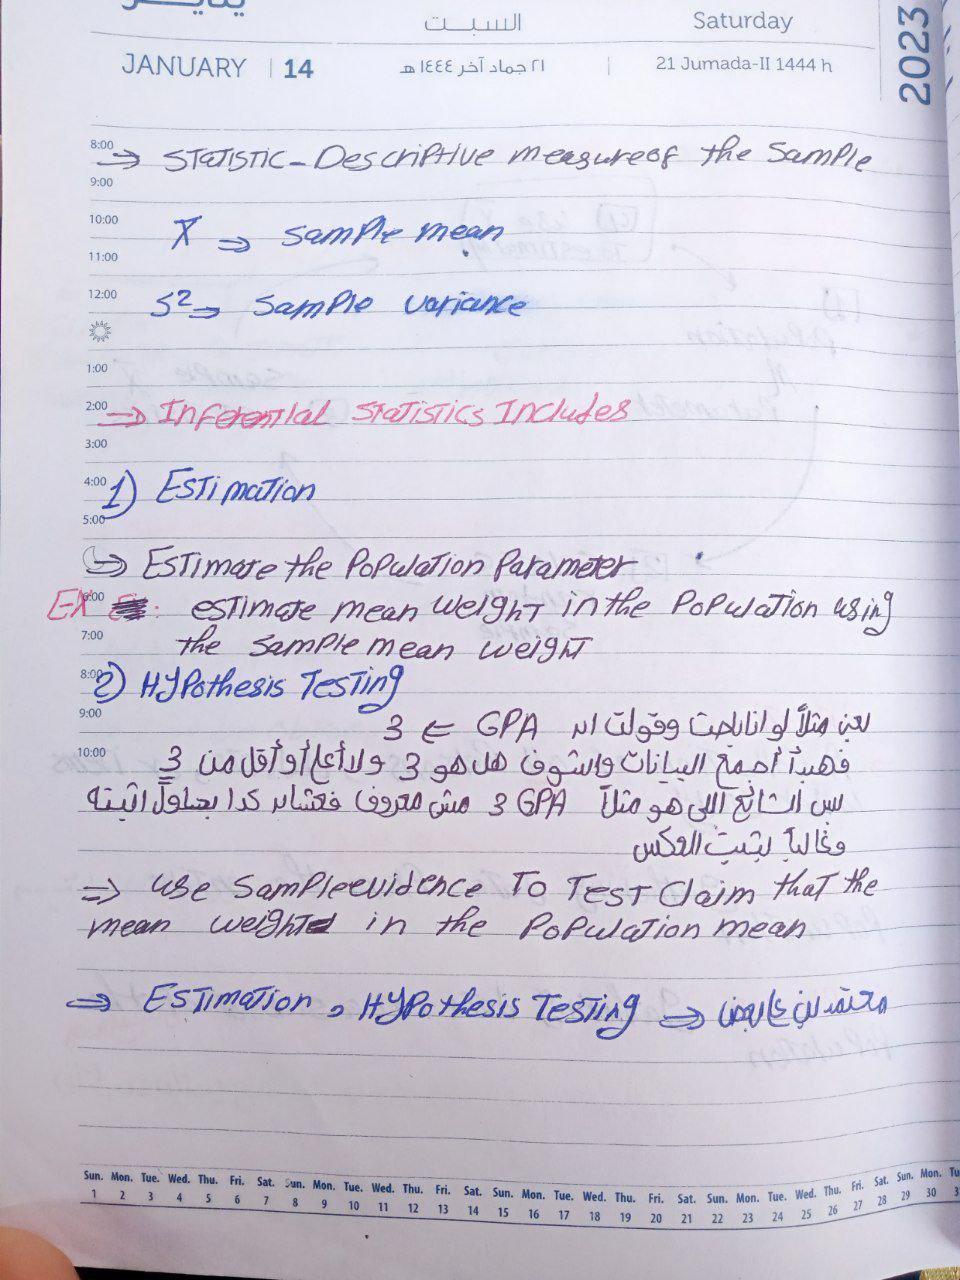 يناير
السبت
Saturday
2023
JANUARY | 14
٢١ جماد آخر ١٤٤٤ هـ
| 21 Jumada-II 1444 h
8:00
⇒ STATISTIC - Descriptive measure of the Sample
9:00
10:00
X̅ ⇒ Sample mean
11:00
12:00
S² ⇒ Sample variance
1:00
2:00
⇒ Inferential Statistics Includes
3:00
4:00
1) Estimation
5:00
↪ Estimate the Population Parameter
6:00
EX : estimate mean weight in the Population using
7:00
the sample mean weight
8:00
2) Hypothesis Testing
9:00
يعني مثلاً لو انا باحث وقولت ان GPA ∈ 3
10:00
فهبدأ أجمع البيانات واشوف هل هو 3 ولا أعلى أو أقل من 3
بس الشائع اللي هو مثلاً GPA 3 مش معروف فعشان كدا بحاول اثبته
وغالباً بثبت العكس
⇒ use Sample evidence To Test Claim that the
mean weight in the Population mean
⇒ Estimation , Hypothesis Testing ⇒ معتمدين على بعض
Sun. Mon. Tue. Wed. Thu. Fri. Sat. Sun. Mon. Tue. Wed. Thu. Fri. Sat. Sun. Mon. Tue. Wed. Thu. Fri. Sat. Sun. Mon. Tue. Wed. Thu. Fri. Sat. Sun. Mon. Tu
1 2 3 4 5 6 7 8 9 10 11 12 13 14 15 16 17 18 19 20 21 22 23 24 25 26 27 28 29 30 3